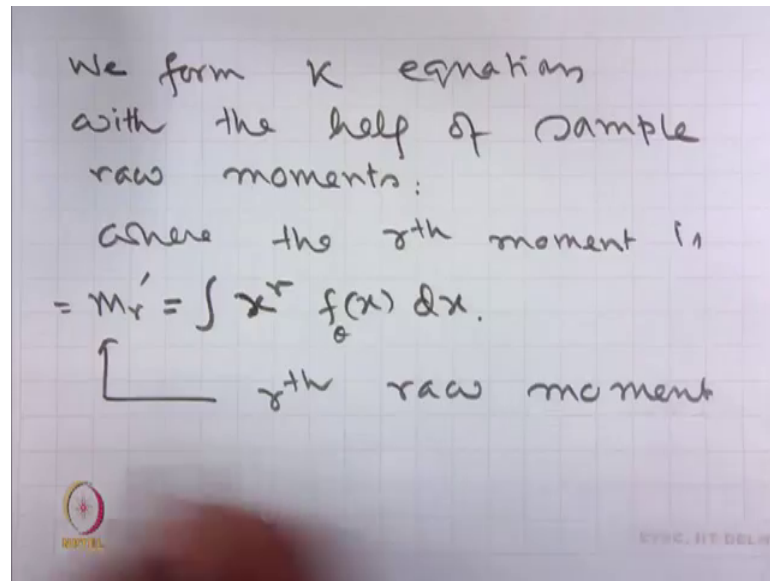 We form K equations
with the help of sample
raw moments:
where the rth moment is
= mr' = ∫ x^r fθ(x) dx.
rth raw moment
NPTEL
ETSC, IIT DELHI